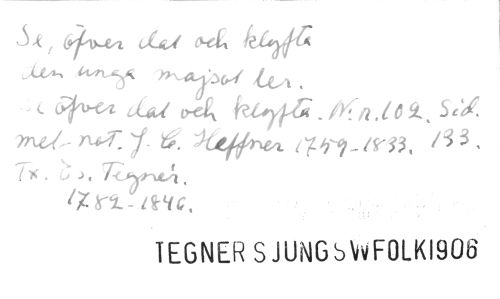 Se, öfver dal och klyfta
den unga majsol ler.
Se öfver dal och klyfta. N:r. 102. Sid.
mel-not. J. C. Heffner 1759-1833. 133.
Tx. Es. Tegnér.
1782-1846.
TEGNER SJUNG SWFOLK1906